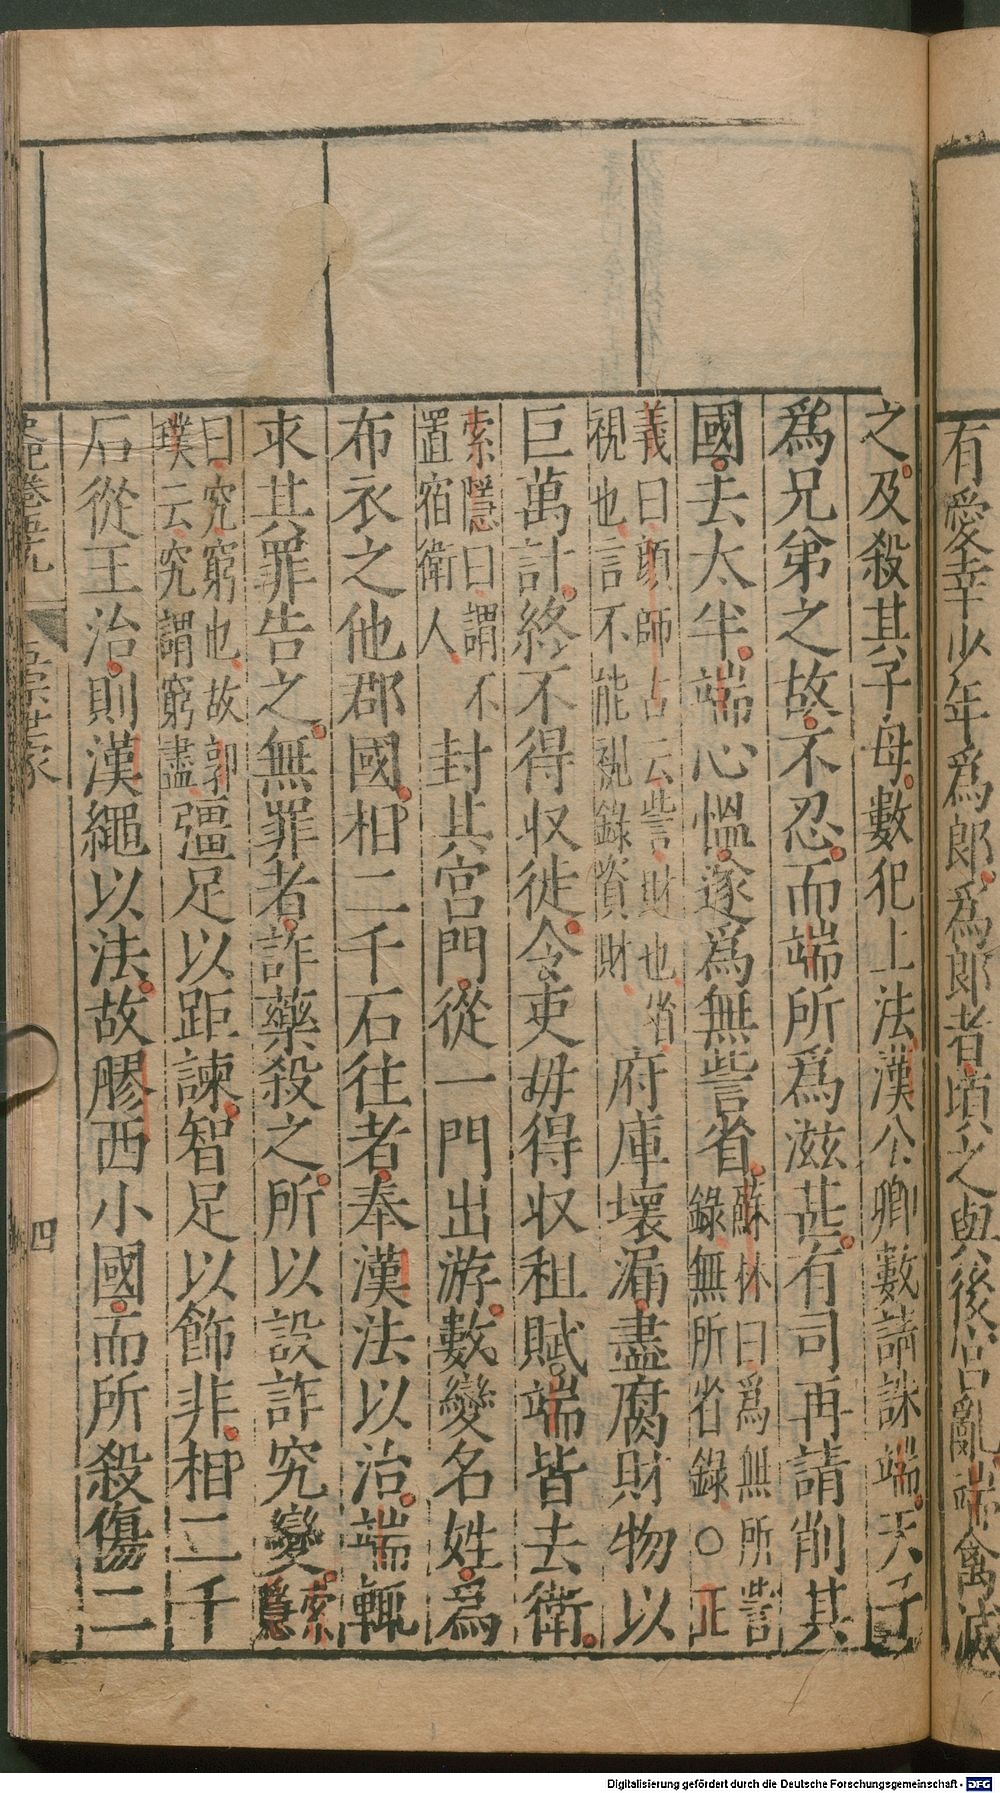 有愛幸少年爲郎爲郎者頃之與後宮亂端禽滅
之及殺其子母數犯上法漢公卿數請誅端天子
爲兄弟之故不忍而端所爲滋甚有司再請削其
國去太半端心慍遂爲無訾省蘇林曰爲無所訾
錄無所省錄○正
義曰顔師古云訾財也省
視也言不能視錄資財府庫壞漏盡腐財物以
巨萬計終不得收徙令吏毋得收租賦端皆去衛
索隱曰謂不
置宿衛人封其宮門從一門出游數變名姓爲
布衣之他郡國相二千石往者奉漢法以治端輒
求其罪告之無罪者詐藥殺之所以設詐究變索
隱
曰究窮也故郭
璞云究謂窮盡彊足以距諫智足以飾非相二千
石從王治則漢繩以法故膠西小國而所殺傷二
五宗世家
四
Digitalisierung gefördert durch die Deutsche Forschungsgemeinschaft - DFG